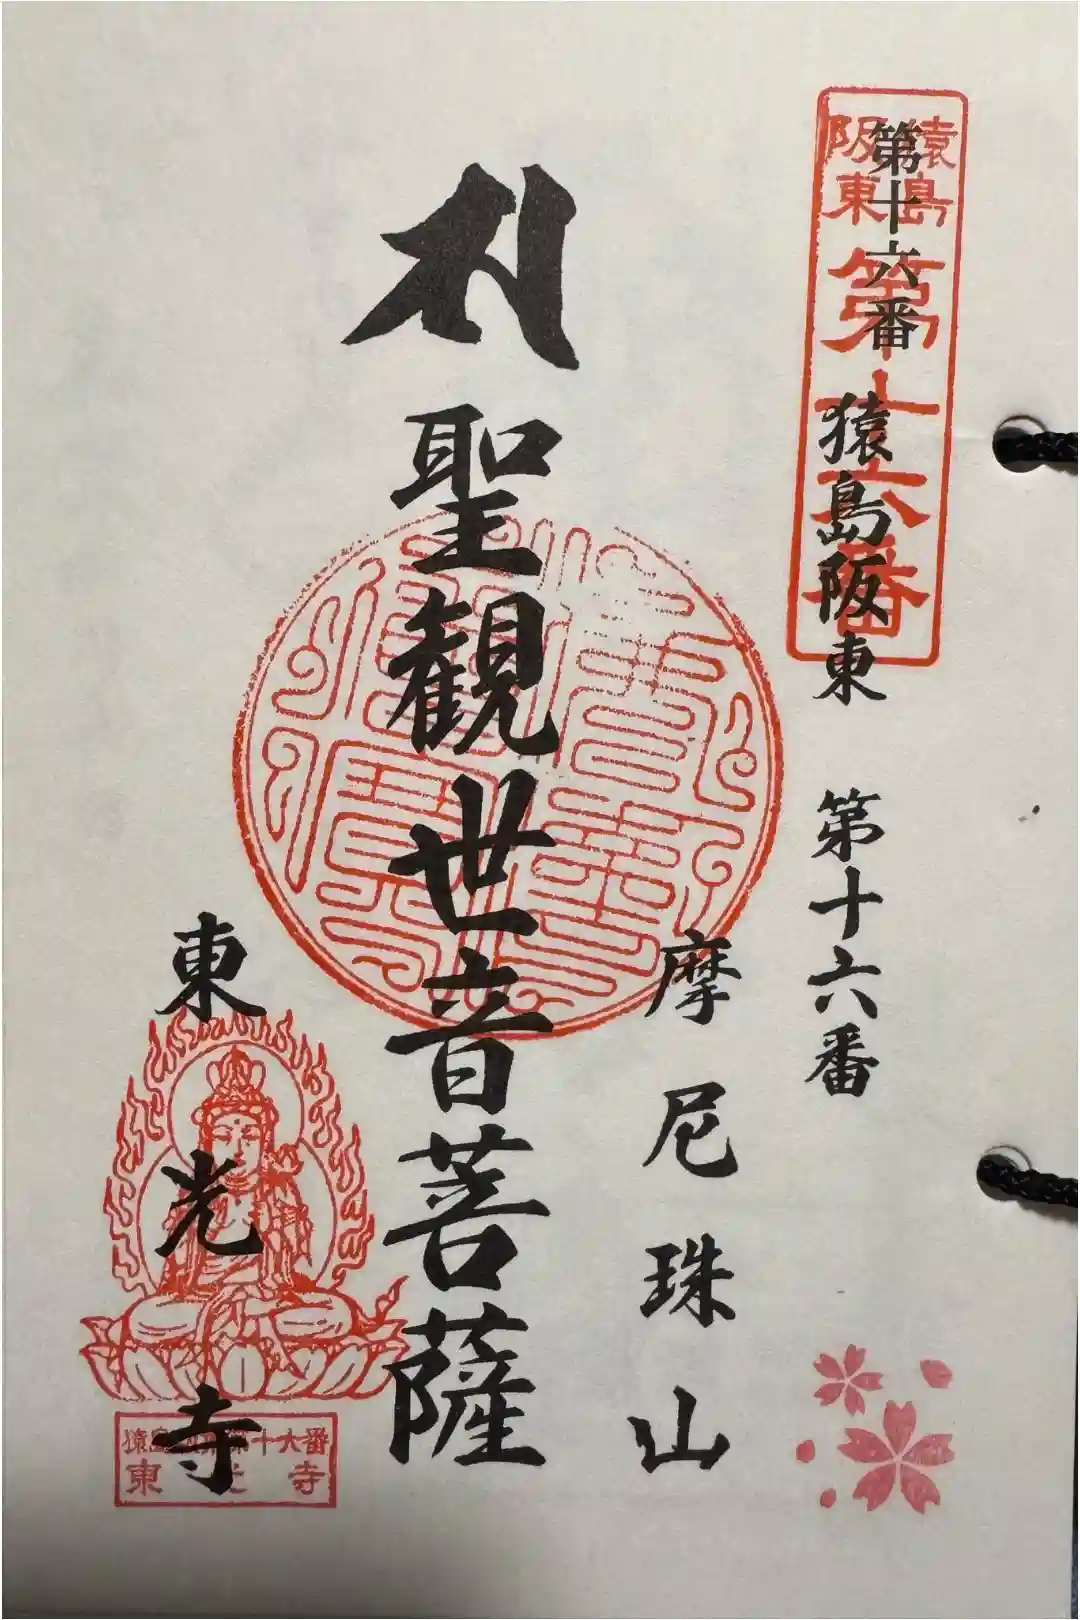 第十六番 猿島阪東 第十六番
猿島
阪東
第十六番
摩尼珠山
聖観世音菩薩
東光寺
猿島阪東第十六番
東光寺